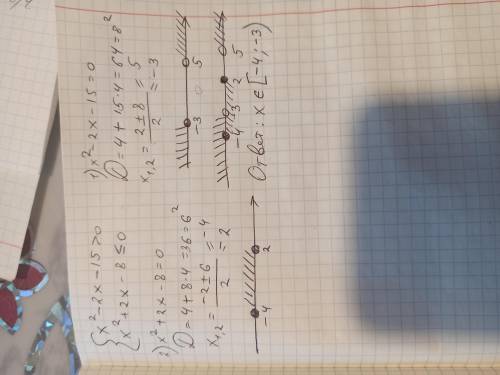 { x² - 2x - 15 > 0
x² + 2x - 8 ≤ 0
1) x² - 2x - 15 = 0
D = 4 + 15·4 = 64 = 8²
x₁,₂ = (2 ± 8)/2 = 5
= -3
-3 5
2) x² + 2x - 8 = 0
D = 4 + 8·4 = 36 = 6²
x₁,₂ = (-2 ± 6)/2 = -4
= 2
-4 2
-4 -3 2 5
Ответ: x ∈ [-4; -3)